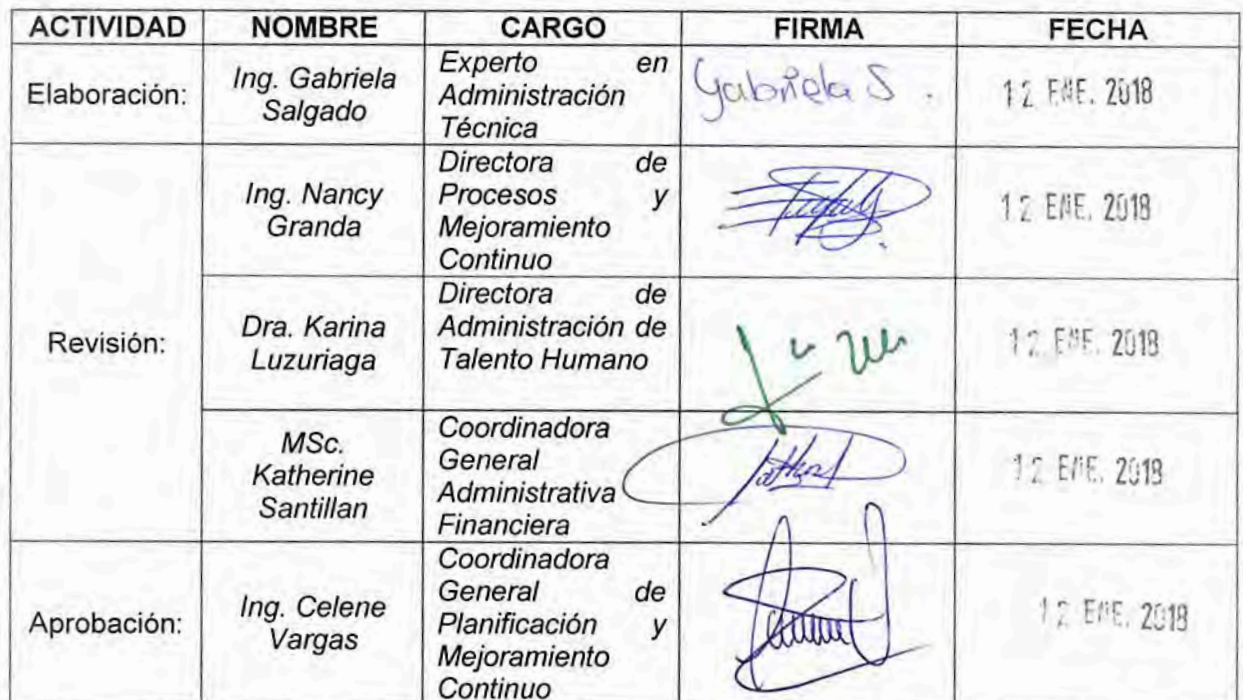 ACTIVIDAD NOMBRE CARGO FIRMA FECHA
Elaboración:
Ing. Gabriela
Salgado
Experto en
Administración
Técnica
Gabriela S.
12 ENE. 2018
Revisión:
Ing. Nancy
Granda
Directora de
Procesos y
Mejoramiento
Continuo
12 ENE. 2018
Dra. Karina
Luzuriaga
Directora de
Administración de
Talento Humano
12 ENE. 2018
MSc.
Katherine
Santillan
Coordinadora
General
Administrativa
Financiera
12 ENE. 2018
Aprobación:
Ing. Celene
Vargas
Coordinadora
General de
Planificación y
Mejoramiento
Continuo
12 ENE. 2018